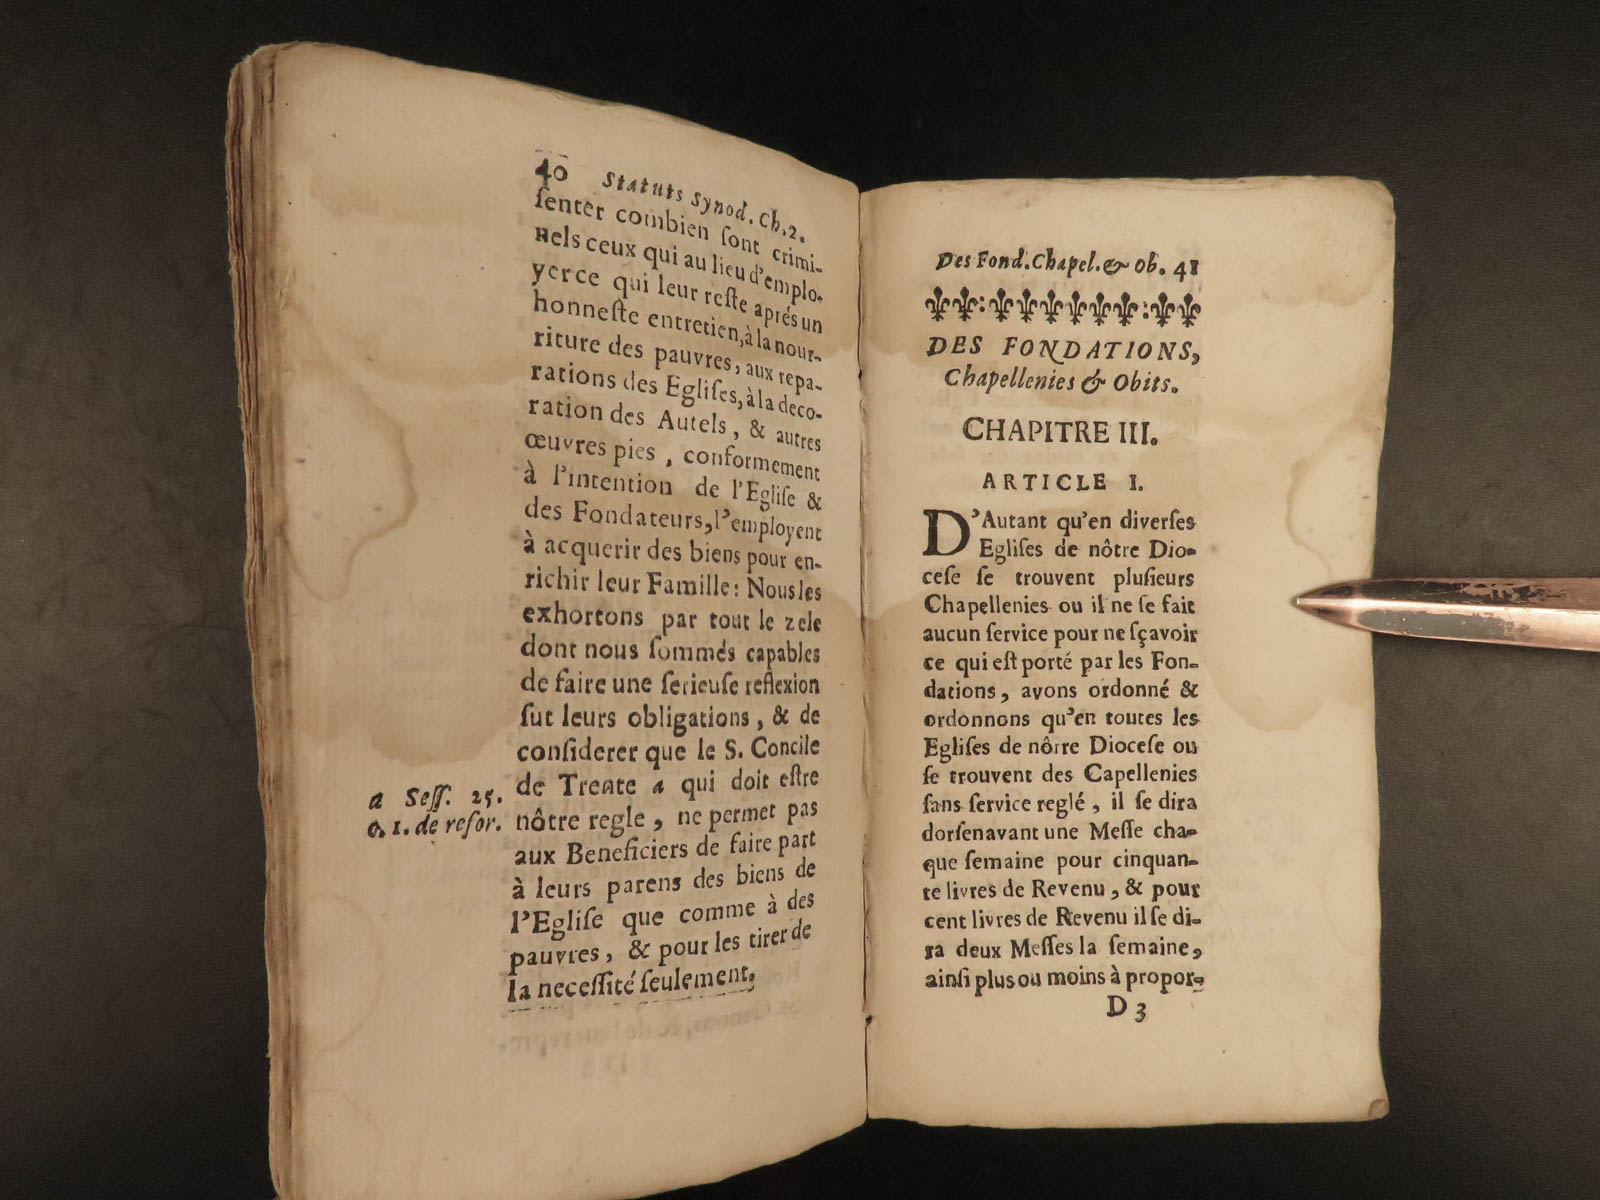 40 Statuts Synod. Ch. 2.
ſenter combien ſont crimi-
nels ceux qui au lieu d'emplo-
yerce qui leur reſte aprés un
honneſte entretien, à la nour-
riture des pauvres, aux repa-
rations des Egliſes, à la deco-
ration des Autels, & autres
œuvres pies, conformement
à l'intention de l'Egliſe &
des Fondateurs, l'employent
à acquerir des biens pour en-
richir leur Famille: Nous les
exhortons par tout le zele
dont nous ſommés capables
de faire une ſerieuſe reflexion
ſut leurs obligations, & de
conſiderer que le S. Concile
de Trente a qui doit eſtre
nôtre regle, ne permet pas
aux Beneficiers de faire part
à leurs parens des biens de
l'Egliſe que comme à des
pauvres, & pour les tirer de
la neceſſité ſeulement.
a Seſſ. 25.
c. 1. de refor.
Des Fond. Chapel. & Ob. 41
DES FONDATIONS,
Chapellenies & Obits.
CHAPITRE III.
ARTICLE I.
D'Autant qu'en diverſes
Egliſes de nôtre Dio-
ceſe ſe trouvent pluſieurs
Chapellenies ou il ne ſe fait
aucun ſervice pour ne ſçavoir
ce qui eſt porté par les Fon-
dations, avons ordonné &
ordonnons qu'en toutes les
Egliſes de nôtre Dioceſe ou
ſe trouvent des Capellenies
ſans ſervice reglé, il ſe dira
dorſenavant une Meſſe cha-
que ſemaine pour cinquan-
te livres de Revenu, & pour
cent livres de Revenu il ſe di-
ra deux Meſſes la ſemaine,
ainſi plus ou moins à propor-
D 3